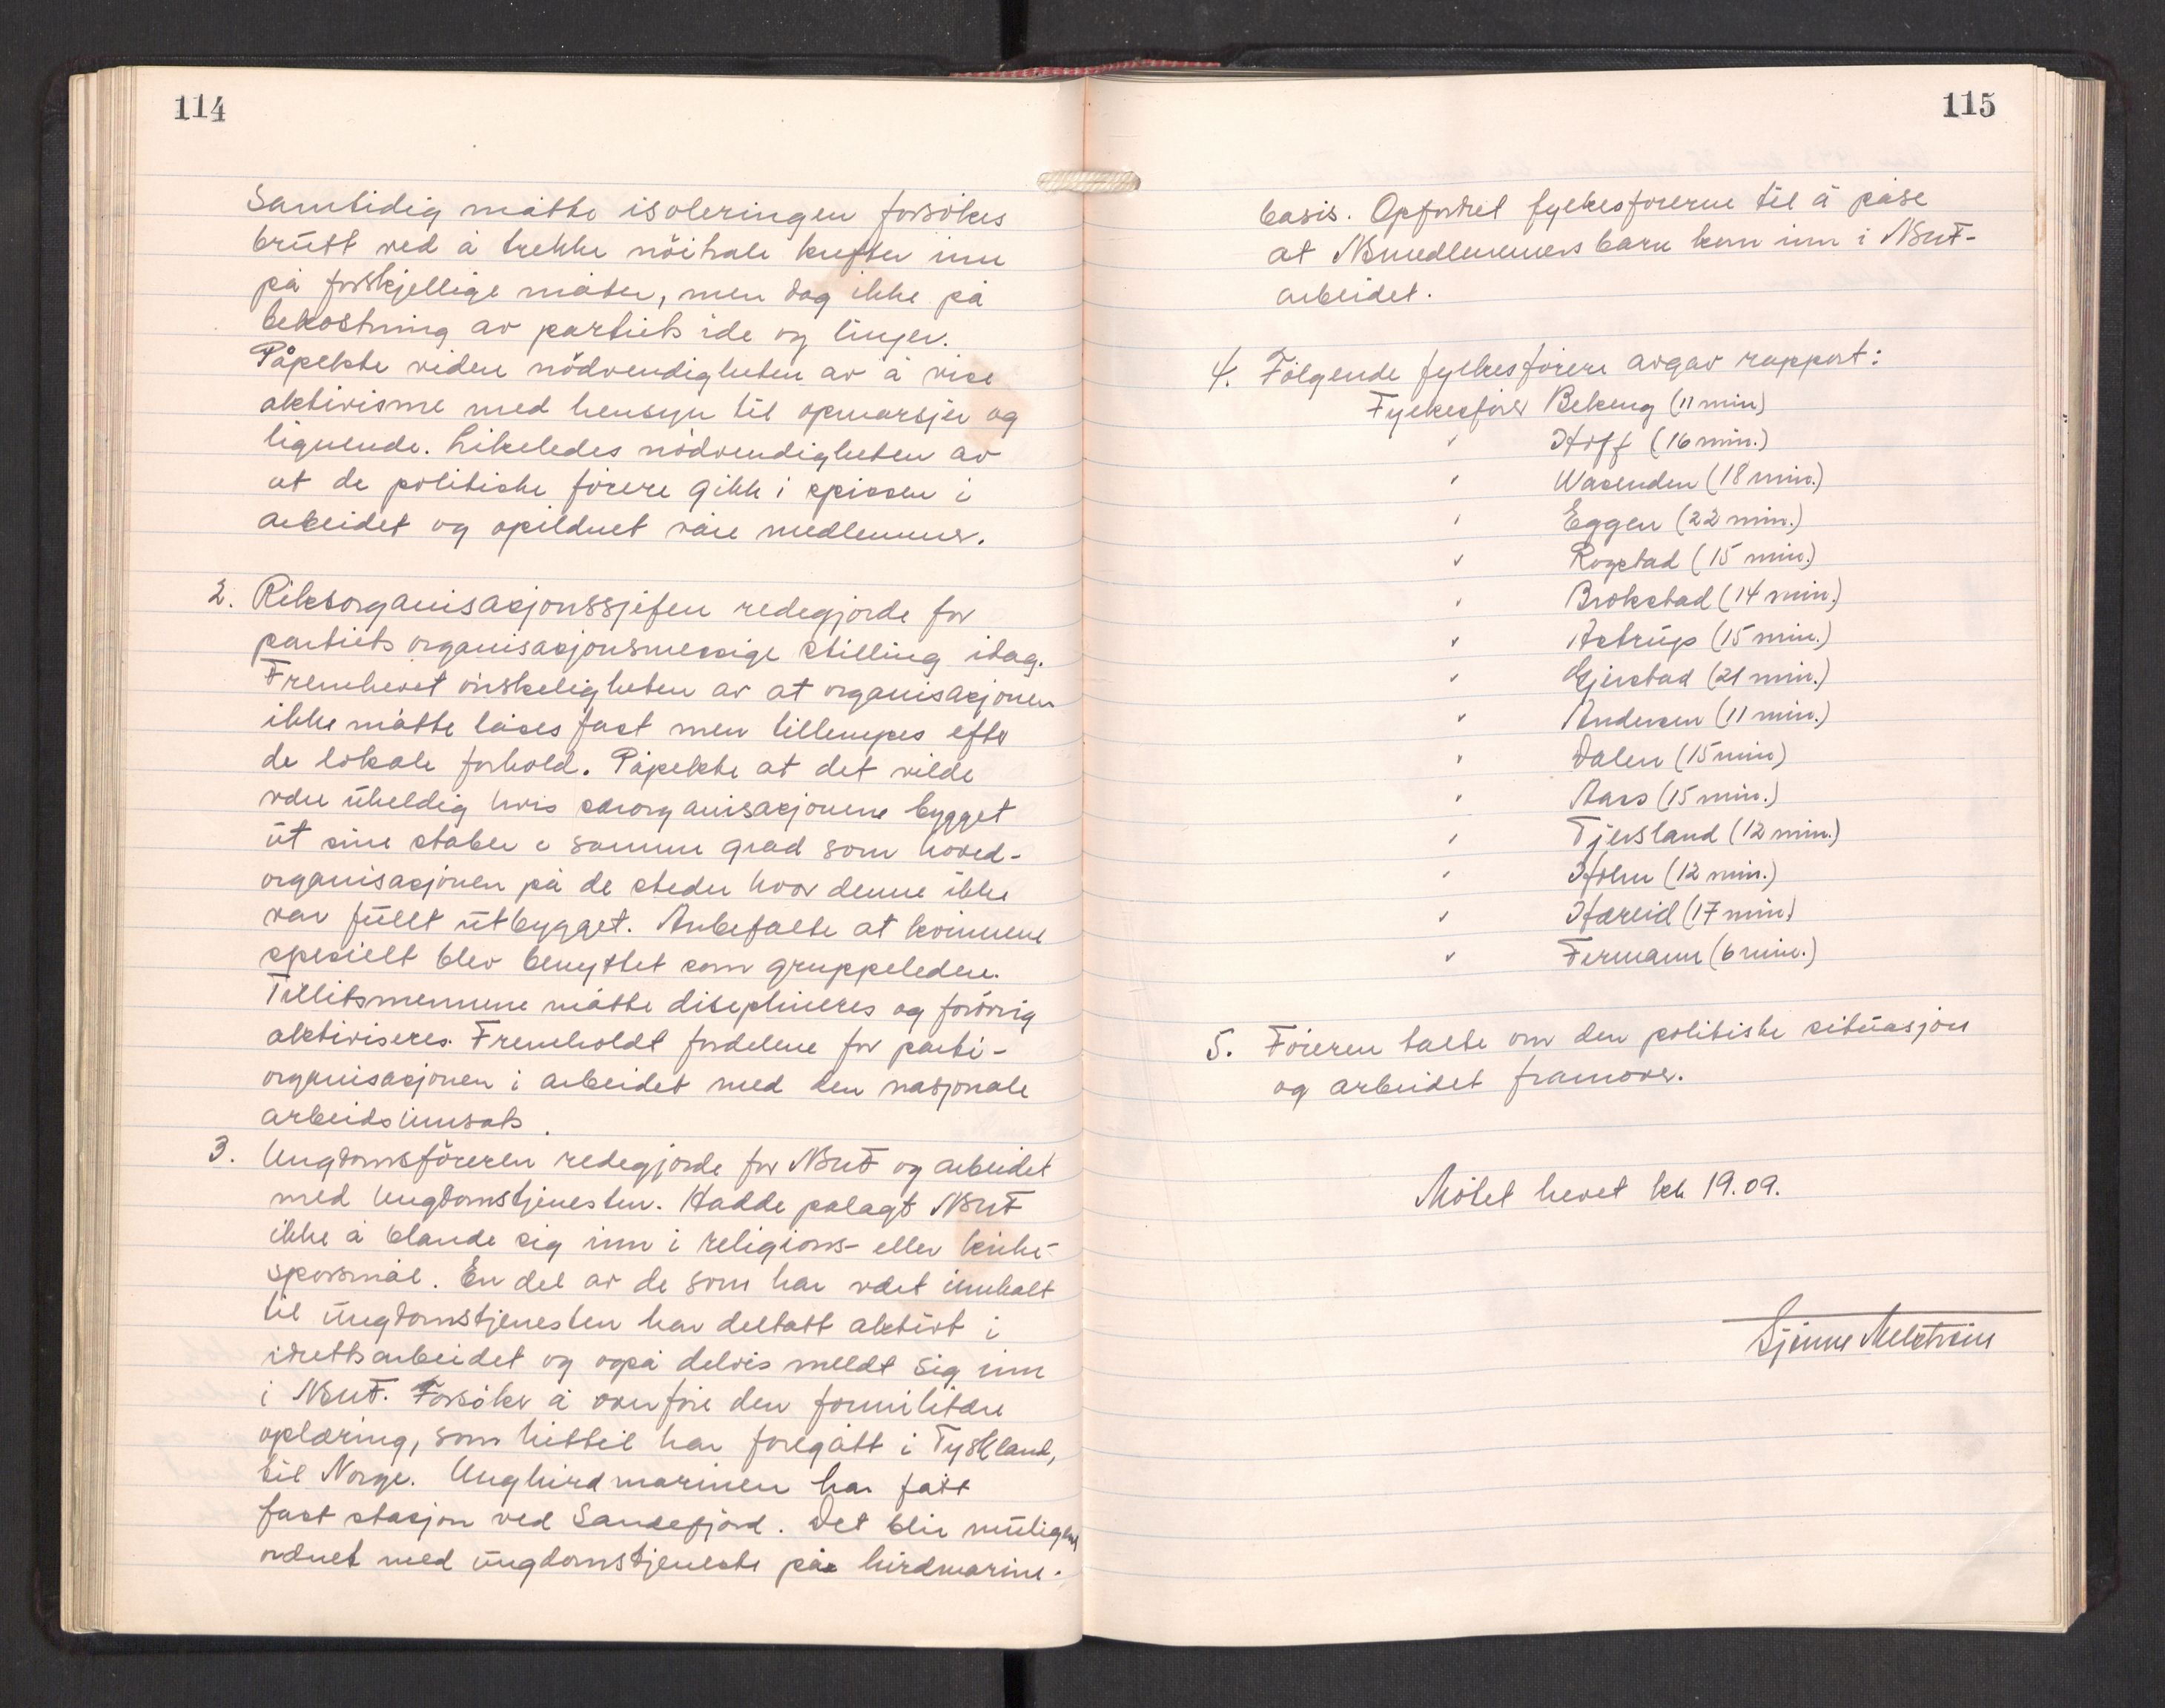 114
Samtidig måtte isoleringen forsökes
brutt ved å trekke nöitrale krefter inn
på forskjellige måter, men dog ikke på
bekostning av partiets ide og linjer.
Påpekte videre nödvendigheten av å vise
aktivisme med hensyn til opmarsjer og
lignende. Likeledes nödvendigheten av
at de politiske förere gikk i spissen i
arbeidet og opildnet våre medlemmer.
2. Riksorganisasjonssjefen redegjorde for
partiets organisasjonsmessige stilling idag.
Fremhevet önskeligheten av at organisasjonen
ikke måtte låses fast men tillempes efter
de lokale forhold. Påpekte at det vilde
være uheldig hvis særorganisasjonene bygget
ut sine staber i samme grad som hoved-
organisasjonen på de steder hvor denne ikke
var fullt utbygget. Anbefalte at kvinnene
spesielt blev benyttet som gruppeledere.
Tillitsmennene måtte disiplineres og forövrig
aktiviseres. Fremholdt fordelene for parti-
organisasjonen i arbeidet med den nasjonale
arbeidsinnsats.
3. Ungdomsföreren redegjorde for NSUF og arbeidet
med Ungdomstjenesten. Hadde palagt NSUF
ikke å blande sig inn i religions- eller kirke-
spörsmål. En del av de som har vært innkalt
til ungdomstjenesten har deltatt aktivt i
idrettsarbeidet og også delvis meldt sig inn
i NSUF. Forsöker å overföre den formilitære
oplæring, som hittil har foregått i Tyskland,
til Norge. Unghirdmarinen har fått
fast stasjon ved Sandefjord. Det blir muligens
ordnet med ungdomstjeneste på hirdmarine-
115
basis. Opfordret fylkesförerne til å påse
at NSmedlemmers barn kom inn i NSUF-
arbeidet.
4. Fölgende fylkesförere avgav rapport:
Fylkesförer Bekeng (11 min)
" Hoff (16 min.)
" Wasenden (18 min.)
" Eggen (22 min.)
" Rogstad (15 min.)
" Brokstad (14 min.)
" Astrup (15 min.)
" Gjerstad (21 min.)
" Andersen (11 min.)
" Dalen (15 min)
" Aass (15 min.)
" Tjersland (12 min.)
" Holm (12 min.)
" Hareid (17 min)
" Fermann (6 min.)
5. Föreren talte om den politiske situasjon
og arbeidet framover.
Mötet hevet kl. 19.09.